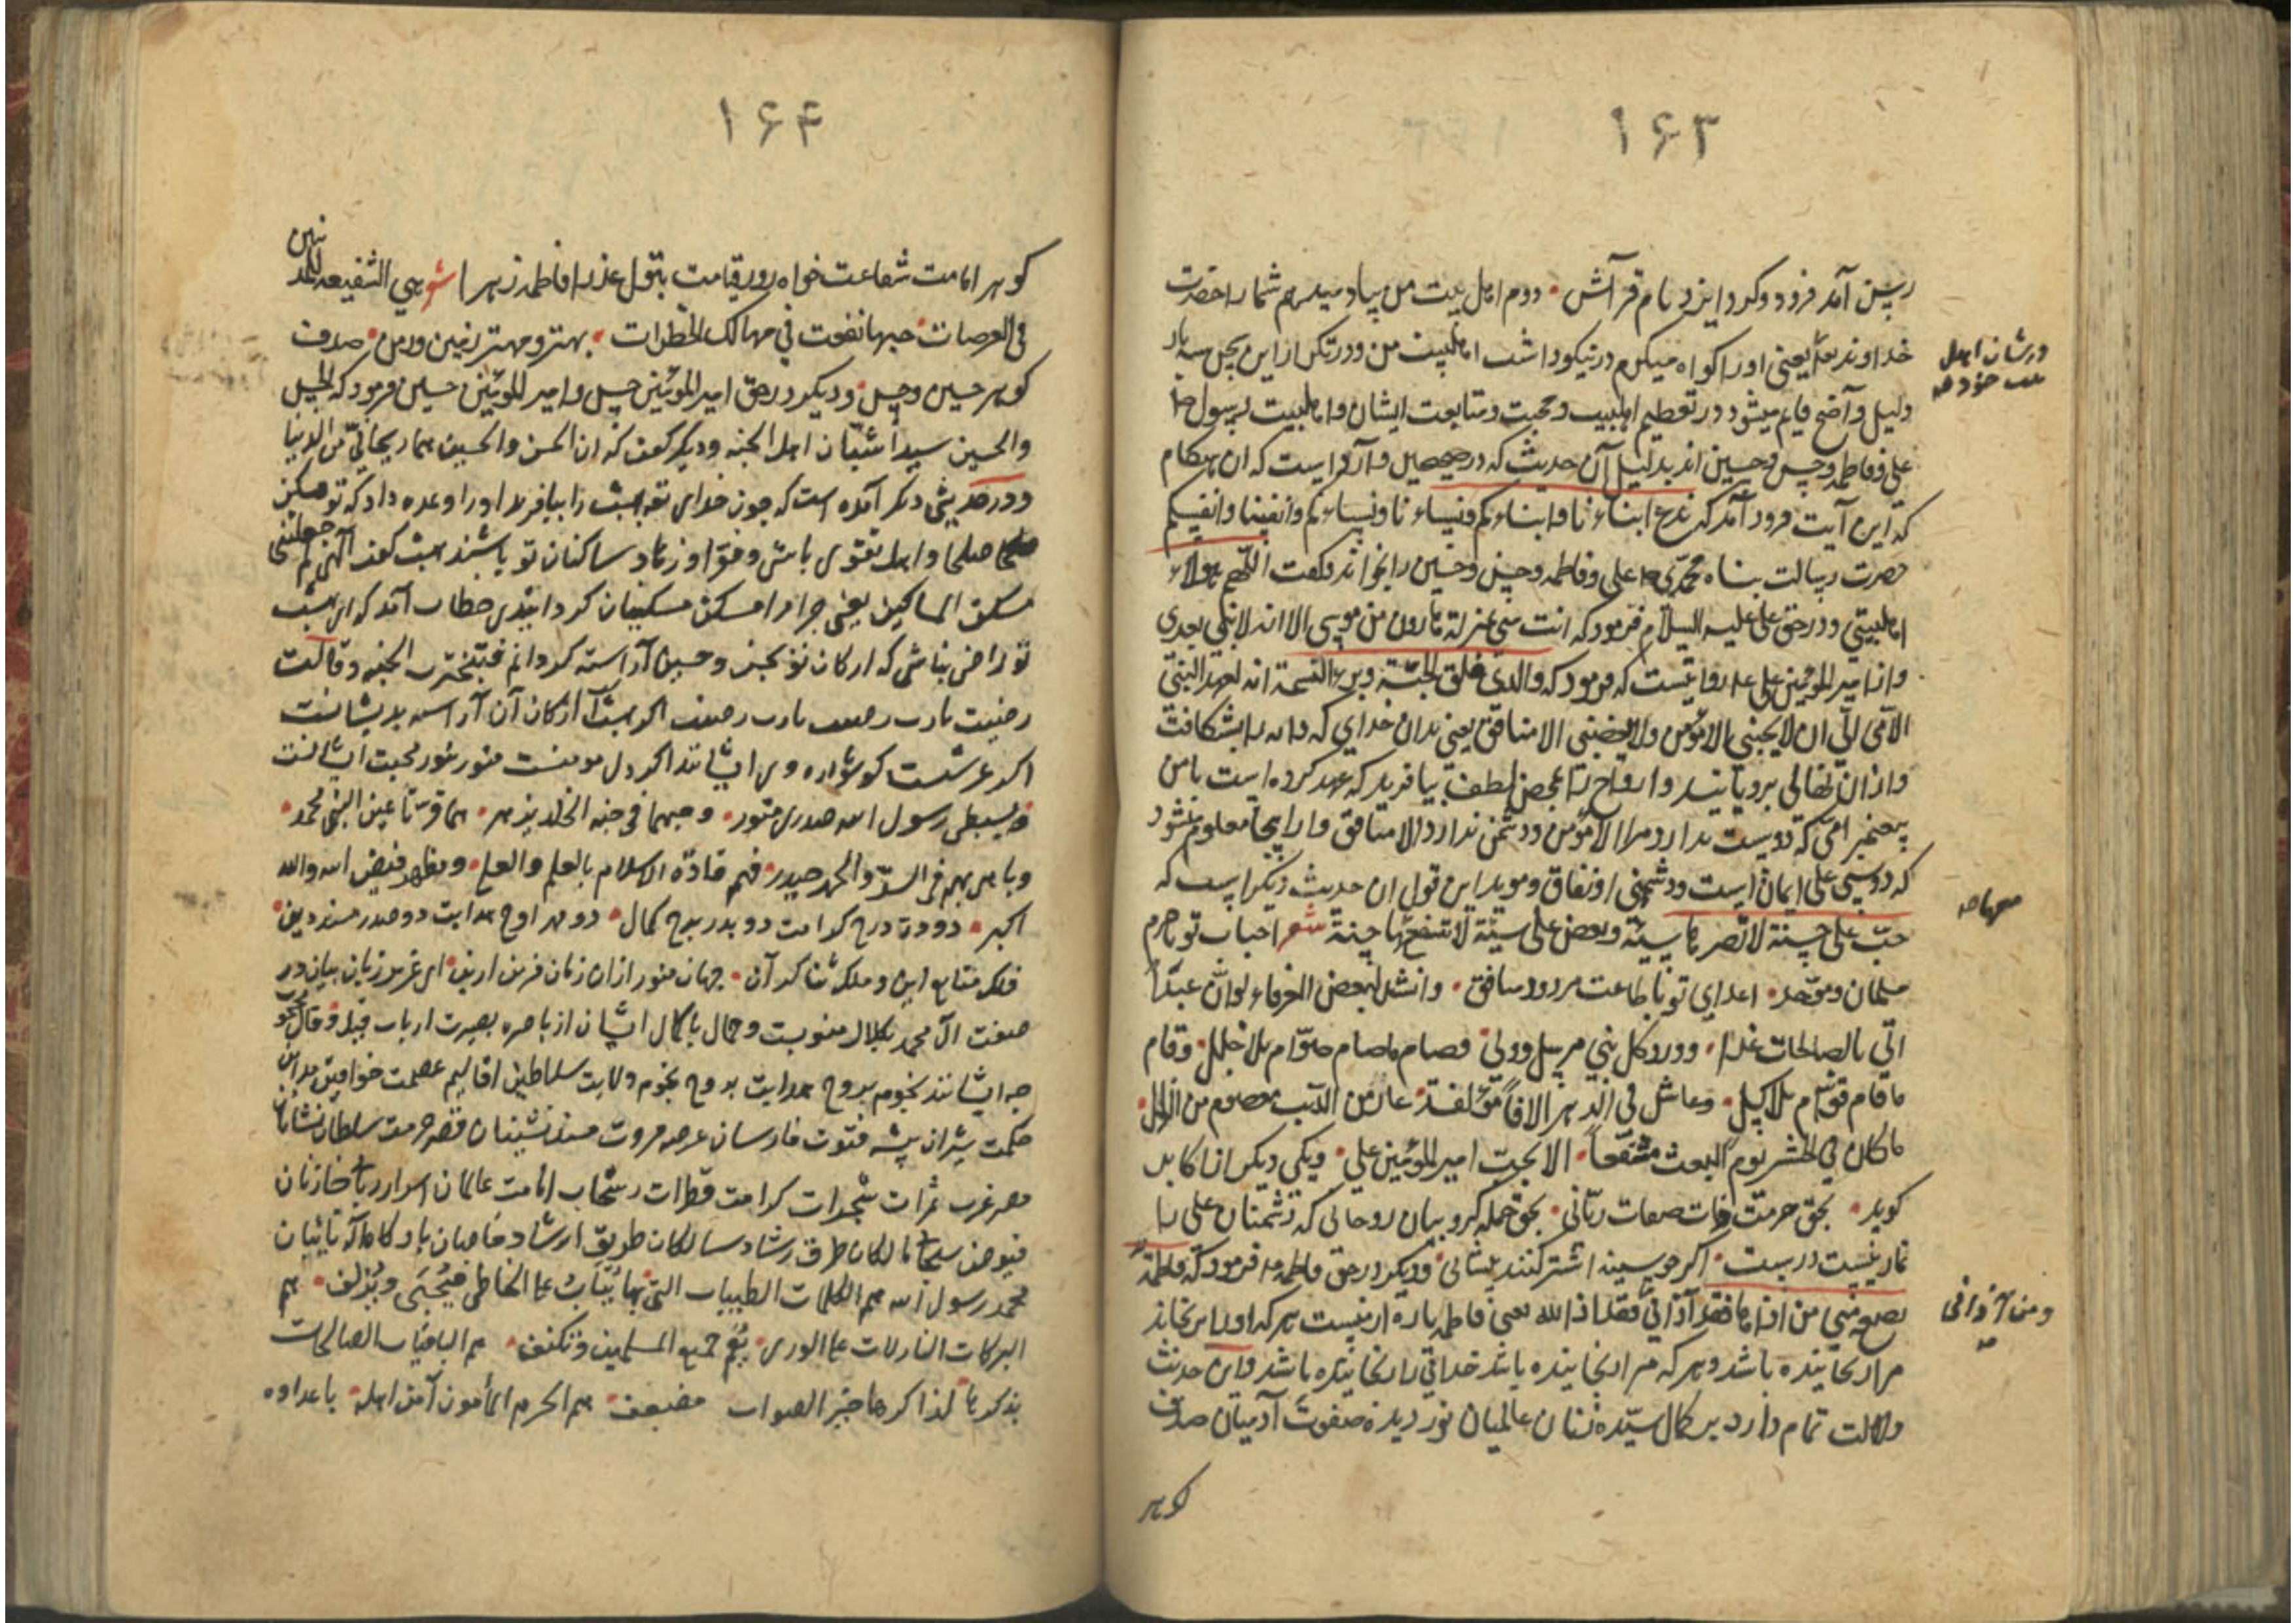 ۱۶۳
فرود و کرد ایزد نام قرآنش • دوم اهل بیت من بیاد میدهم شما را حضرت
خداوند یعنی او را کواه میکیرم در نیکو داشت اهلبیت من و در تکرار این سه بار
دلیل واضح قایم میشود در تعظیم اهلبیت و محبت و متابعت ایشان و اهلبیت رسول
علی و فاطمه و حسن و حسین اند بدلیل آن حدیث که در صحیحین وارد است که ان هنکام
که این آیت فرود آمد که ندع ابناءنا و ابناءکم و نساءنا و نساءکم وانفسنا وانفسکم
حضرت رسالت پناه محمدی علی و فاطمه و حسن و حسین را بخواند و کفت اللهم هولاء
اهلبیتی و در حق علی علیه السلام فرمود که انت منی بمنزلة هارون من موسی الا انه لا نبی بعدی
و از امیر المؤمنین علی روایتست که فرمود که والذی فلق الحبة وبرء النسمة انه لعهد النبی
الامی الی ان لا یحبنی الا مؤمن ولا یبغضنی الا منافق یعنی بدان خدای که دانه را بشکافت
و ازان نهالی برویانید و ارواح را بمحض لطف بیافرید که عهد کرده است با من
پیغمبر امی که دوست ندارد مرا الا مؤمن و دشمن ندارد الا منافق و از اینجا معلوم میشود
که دوستی علی ایمان است و دشمنی او نفاق و موید این قول ان حدیث دیکر است که
حب علی حسنة لا تضر معها سیئة و بغض علی سیئة لا تنفع معها حسنة شعر احباب تو محرم
مسلمان و موحد • اعدای تو با طاعت مردود منافق • وانشد لبعض العرفاء لو ان عبدا
اتی بالصالحات غدا • وود کل نبی مرسل وولی • وصام ما صام صوام بلا خلل • وقام
ما قام قوام بلا کسل • وعاش فی الدهر الافا مؤلفة • عار من الذنب معصوم من الزلل •
ما کان فی الحشر یوم البعث منتفعا • الا بحب امیر المؤمنین علی • ویکی دیکر از اکابر
کوید • بحق حرمت ذات صفات ربانی • بحق جمله کروبیان روحانی که دشمنان علی را
نماز نیست درست • اکر چو سینه اشتر کنند پیشانی • و دیکر در حق فاطمه فرمود که فاطمة
بضعة منی من اذاها فقد آذانی فقد اذا الله یعنی فاطمه پاره از منست هر که او را برنجاند
مرا رنجانیده باشد و هر که مرا رنجانیده باشد خدای را رنجانیده باشد و این حدیث
دلالت تمام دارد بر کمال سیده زنان عالمیان نور دیده صفوت آدمیان صدف
کوهر
در شان اهل
بیت خود
معها
ومن آذانی
۱۶۴
کوهر امامت شفاعت خواه روز قیامت بتول عذرا فاطمه زهرا شعر هی الشفیعة للمذنبین
فی العرصات • حبها نفعت فی مهالک الخطرات • بهتر و مهتر زمین و زمن • صدف
کوهر حسین و حسن • و دیکر در حق امیر المؤمنین حسن و امیر المؤمنین حسین فرمود که الحسن
والحسین سیدا شبان اهل الجنه و دیکر کفت که ان الحسن والحسین هما ریحانی من الدنیا
و در حدیثی دیکر آمده است که چون خدای بهشت را بیافرید او را وعده داد که تو مسکن
صلحا و اهل تقوی باشی و فقرا و زهاد ساکنان تو باشند بهشت کفت الهی لم جعلتنی
مسکن المساکین یعنی چرا مرا مسکن مسکینان کردانیدی خطاب آمد که ای بهشت
تو راضی نباشی که ارکان تو بحسن و حسین آراسته کردانم فتبخترت الجنه و قالت
رضیت یارب رضیت یارب رضیت اکر بهشت ارکان آن آراسته بدیشانست
اکر عرشست کوشواره وی ایشانند اکر دل مومنست منور بنور محبت ایشانست
بسبطی رسول الله صدری منور • وحبهما فی جنة الخلد یزهر • هما قرتا عین النبی محمد •
اکبر • دو دره درج کرامت دو بدر برج کمال • دو مهر اوج هدایت دو صدر مسند دین •
فلک متابع این و ملک ثنا کر آن • جهان منور ازان زمان مزین ازین • ای عزیز زبان بیان در
صفت آل محمد بکلال منسوبست و جمال با کمال ایشان از باصره بصیرت ارباب قیل و قال محجوب
چه ایشانند نجوم بروج هدایت بروج نجوم ولایت سلاطین اقالیم عصمت خواقین مداین
حکمت شیران بیشه فتوت فارسان عرصه مروت مسند نشینان قصر حرمت سلطان نشانان
مصر عزت ثمرات شجرات کرامت قطرات سحاب امامت عالمان اسرار ربانی خازنان
فیوض سبحانی مالکان طرق رشاد سالکان طریق ارشاد
محمد رسول الله هم الکلمات الطیبات التی بها یتاب علی الخاطی فیجبی ویزلف • هم
البرکات النازلات علی الوری • یعم جمیع المسلمین وتکنف • هم الباقیات الصالحات
بذکرها • لذاکرها خیر الثواب مضعف • هم الحرم المأمون آمن اهله • باعداوه